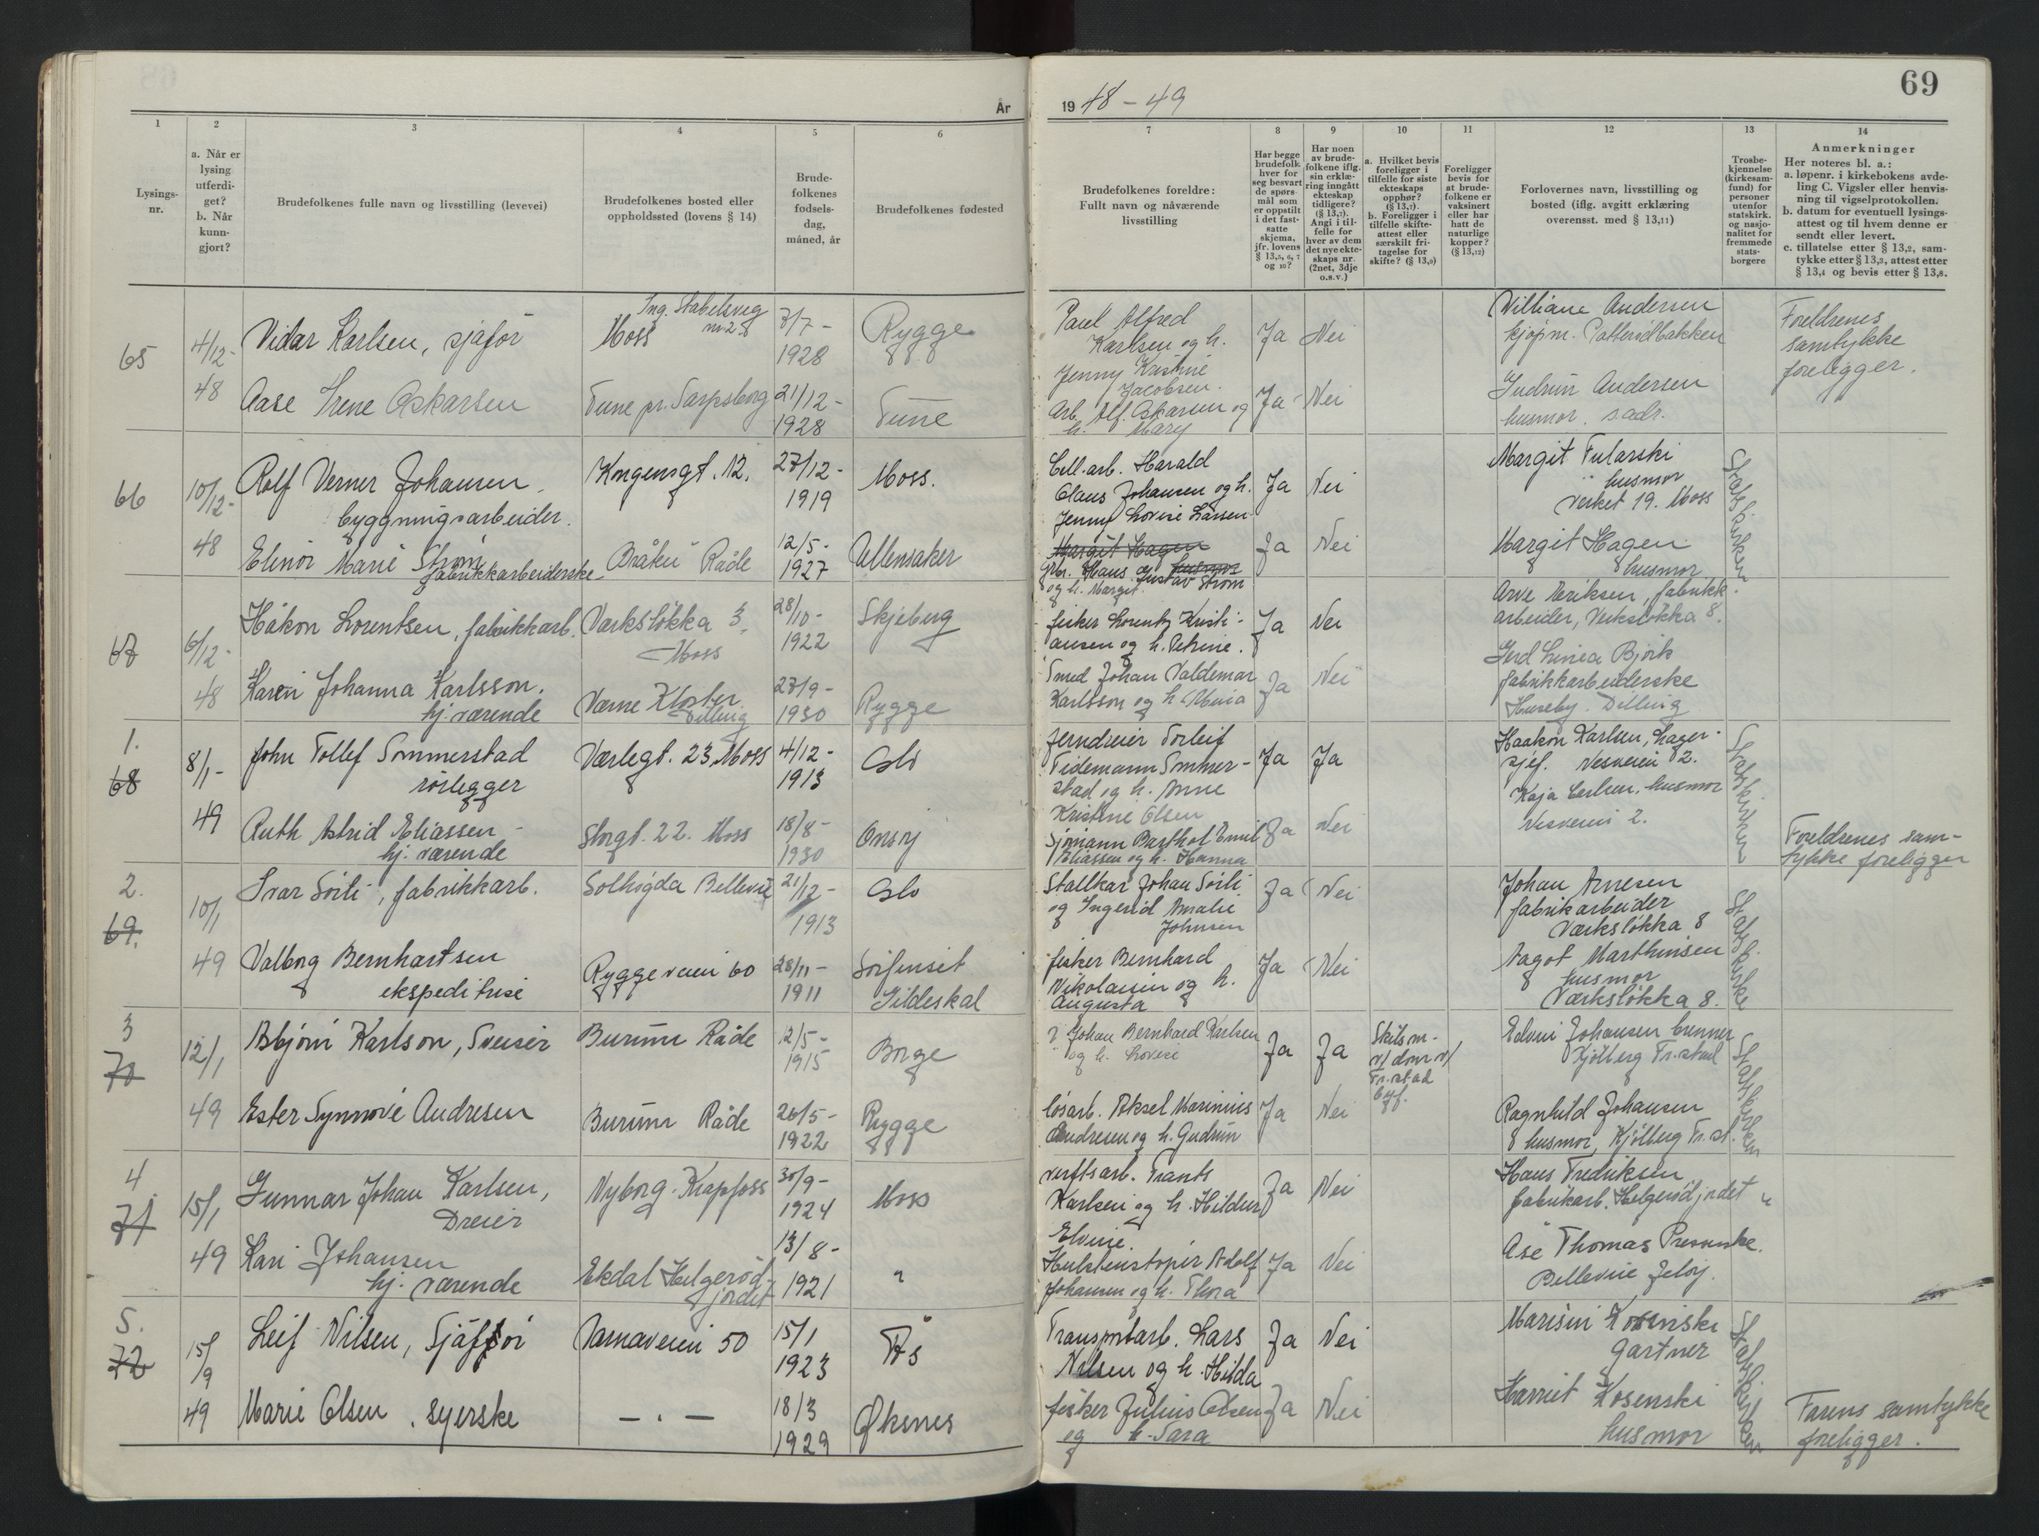 69
År 19 48 – 49
1
2
3
4
5
6
7
8
9
10
11
12
13
14
Lysings-
nr.
a. Når er
lysing
utferdi-
get?
b. Når
kunn-
gjort?
Brudefolkenes fulle navn og livsstilling (levevei)
Brudefolkenes bosted eller
oppholdssted (lovens § 14)
Brude-
folkenes
fødsels-
dag,
måned, år
Brudefolkenes fødested
Brudefolkenes foreldre:
Fullt navn og nåværende
livsstilling
Har begge
brudefolk
hver for
seg besvart
de spørs-
mål som
er oppstilt
i det fast-
satte
skjema,
jfr. lovens
§ 13,5, 6, 7
og 10?
Har noen
av brude-
folkene iflg.
sin erklæ-
ring inngått
ekteskap
tidligere?
(§ 13,7).
Angi i til-
felle for
hver av dem
det nye ekte-
skaps nr.
(2net, 3dje
o.s.v.)
a. Hvilket bevis
foreligger i
tilfelle for siste
ekteskaps
opphør?
(§ 13,7).
b. Foreligger i
tilfelle skifte-
attest eller
særskilt fri-
tagelse for
skifte? (§ 13,9)
Foreligger
bevis for
at brude-
folkene er
vaksinert
eller har
hatt de
naturlige
kopper?
(§ 13,12)
Forlovernes navn, livsstilling og
bosted (iflg. avgitt erklæring
overensst. med § 13,11)
Trosbe-
kjennelse
(kirkesam-
fund) for
personer
utenfor
statskirk.
og nasjo-
nalitet for
fremmede
stats-
borgere
Anmerkninger
Her noteres bl. a.:
a. løpenr. i kirkebokens avde-
ling C. Vigsler eller henvis-
ning til vigselprotokollen.
b. datum for eventuell lysings-
attest og til hvem denne er
sendt eller levert.
c. tillatelse etter § 13,2, sam-
tykke etter § 13,3, attest etter
§ 13,4 og bevis etter § 13,8.
65
4/12-
48
Vidar Karlsen, sjåfør
Ing. Stabelsveg
nr 28
Moss
3/7 -
1928
Rygge
Paul Alfred
Karlsen og h.
Jenny Kristine
Jacobsen.
Ja
Nei
Andersen
kjøpm. Patterødbakken
Foreldrenes
samtykke
foreligger.
Aase Irene Oskarsen
Tune pr. Sarpsborg
21/12-
1928
Tune
Arb. Alf. Oskarsen og
h. Mary
Ja
Nei
Gudrun Andersen
husmor. sadr.
66
10/12-
48
Rolf Verner Johansen
byggningsarbeider.
Kongensgt. 12.
27/12-
1919
Moss.
Cell.arb. Harald
Claus Johansen og h.
Jenny Lovise Larsen
Ja
Nei
Margit Fularski
husmor
Verket 19. Moss
Statskirken
Elinor Marie Strøm
fabrikkarbeiderske
Bråten Råde
12/5-
1927
Ullensaker
Margit Hagen
husmor
gbr. Hans Gustav Strøm
og h. Margit
Ja
Nei
Margit Hagen
husmor
67
6/12-
48
Håkon Lorentsen, fabrikkarb.
Værksløkka 3
Moss
28/10-
1922
Skjeberg
fisker Lorentz Kristi-
ansen og h. Petrine.
Ja
Nei
Arve Eriksen, fabrikk-
arbeider, Verksløkka 8.
Karin Johanna Karlsson.
hj. værende
Værne Kloster
Dilling
27/9-
1930
Rygge
Smed Johan Valdemar
Karlsson og h. Maria
Ja
Nei
Gerd Linea Bjørk
fabrikkarbeiderske
Huseby. Dilling
1.
68
8/1-
49
John Tollef Sommerstad
rørlegger
Værlegt. 23, Moss
4/12-
1913
Oslo
Jerndreier Torleif
Tidemann Sommer-
stad og h. Anne
Kristine Olsen
Ja
Ja
Haakon Karlsen, Lager-
sjef. Nesveien 82.
Kaja Carlsen, husmor
Nesveien 2.
Statskirken
Ruth Astrid Eliassen
hj. værende
Storgt. 22. Moss
18/8-
1930
Onsøy
Sjømann Barthof Emil
Eliassen og h. Hanna
Ja
Nei
Foreldrenes sam-
tykke foreligger
2.
69.
10/1
49
Ivar Sørli, fabrikkarb.
Solhøgda Bellevue
21/12-
1913
Oslo
Stallkar Johan Sørli
og Ingerid Amalie
Johnsen
Ja
Nei
Johan Arnesen
fabrikarbeider
Værksløkka 8
Statskirke
Valborg Bernhartsen
ekspeditrise
Ryggeveien 60
28/11-
1911
Sørfinset
Gildeskal
fisker Bernhard
Nikolaisen og h.
Augusta
Ja
Nei
Aagot Marthinsen
husmor
Værksløkka 8.
3
70
12/1
49
Asbjørn Karlson, Sveiser
Burum Råde
12/5-
1915
Borge
Johan Bernhard Karlsen
og h. Lovise
Ja
Ja
Skilsm-
v/ dom v/
Fr.stad
byf.
Edvin Johansen brenner
Kjølberg Fr.stad
Statskirken
Ester Synnøve Andresen
Burum Råde
26/5-
1922
Rygge
løsarb. Aksel Marinius
Andresen og h. Gudrun
Ja
Nei
Ragnhild Johansen
husmor, Kjølberg Fr.st.
4
71
15/1
49
Gunnar Johan Karlsen,
Dreier
Nyborg. Krapfoss
30/9-
1924
Moss
verftsarb. Frants
Karlsen og h. Hildur
Elvine.
Ja
Nei
Hans Fredriksen
fabrikarb. Helgerødjordet
"
Kari Johansen
hj. værende
Ekdal Helgerød-
jordet
13/8-
1921
"
Hulstenstøper Adolf
Johansen og h. Thora
Ja
Nei
Åse Thomas
Bellevue Jeløy.
5.
72
15/9
49
Leif Nilsen, Sjåfør
Varnaveien 50
15/1
1923
Ås
Transportarb. Lars
Nilsen og h. Hilda
Ja
Nei
Kosinski
Gartner
Statskirken
Marie Olsen, syerske
— . —
18/3
1929
Øksnes
fisker Julius Olsen
og h. Sara
Ja
Nei
Harriet Kosenski
husmor
Farens samtykke
foreligger.